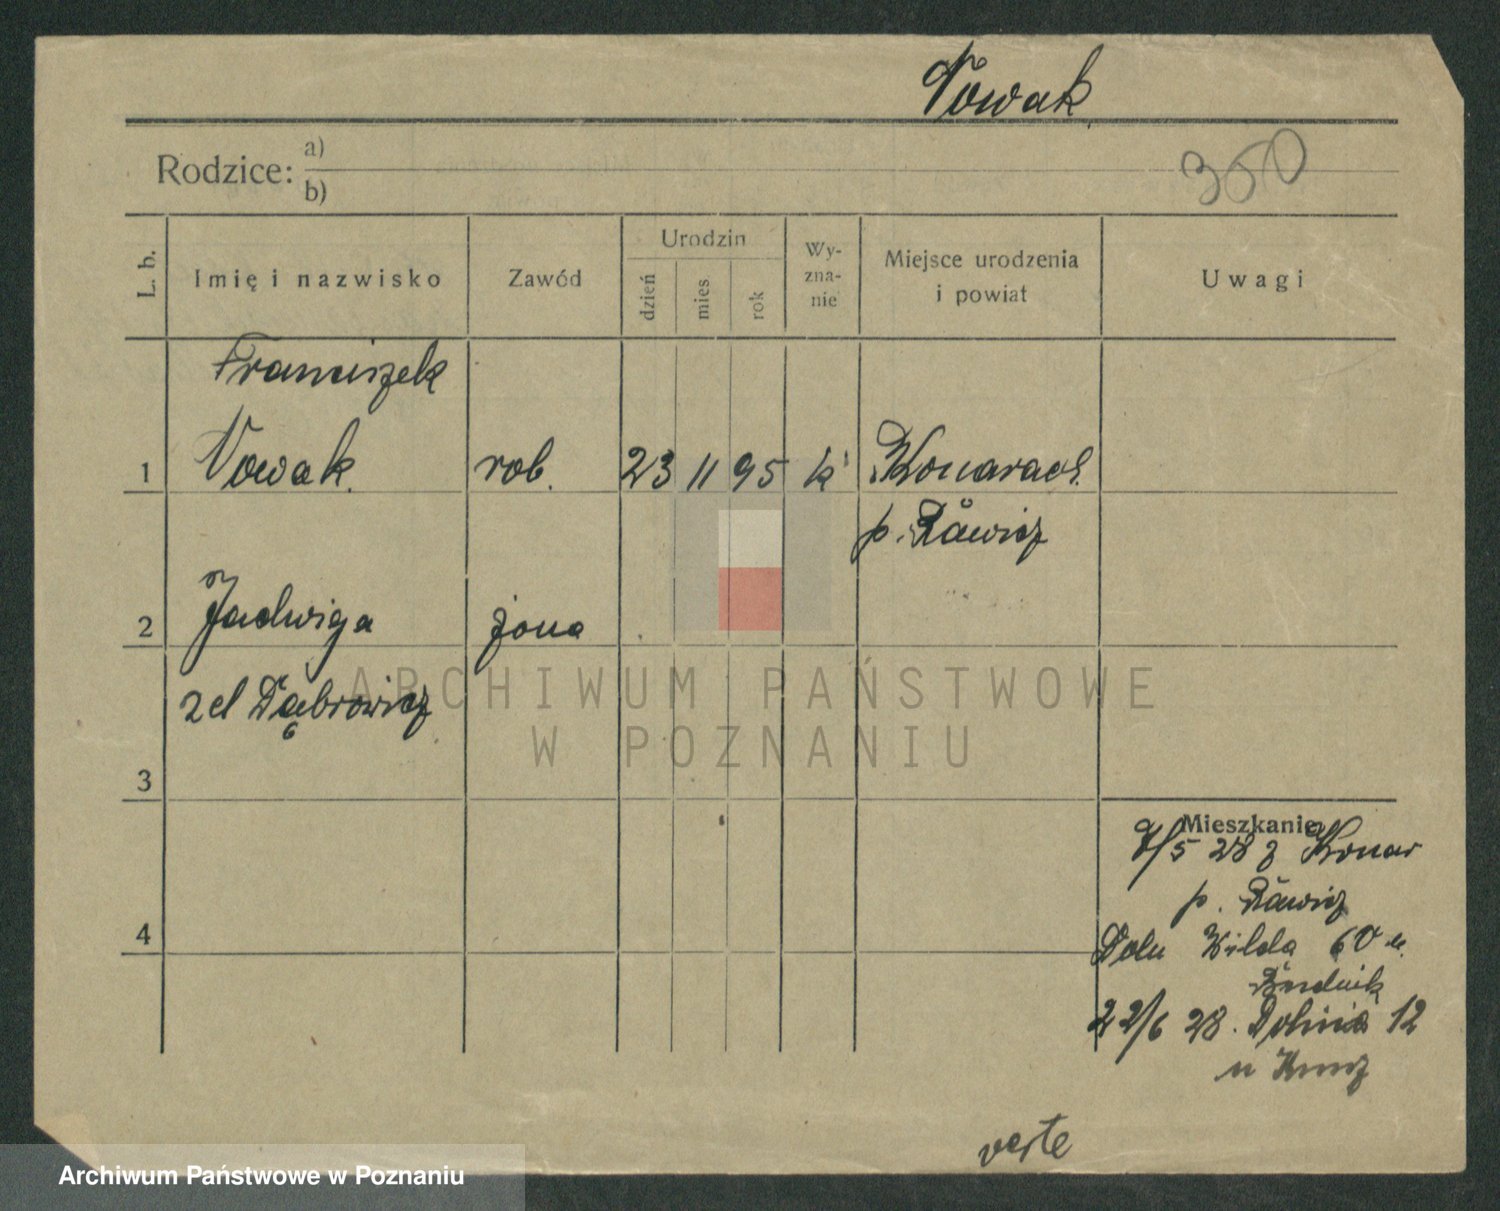 Nowak
350
Rodzice: a)
b)
L. b.
Imię i nazwisko
Zawód
Urodzin
dzień
mies
rok
Wy-
zna-
nie
Miejsce urodzenia
i powiat
Uwagi
Franciszek
1 Nowak rob. 23 11 95 k
p. Rawicz
2 Jadwiga żona
Dąbrowicz
ARCHIWUM PAŃSTWOWE
W POZNANIU
3
Mieszkanie
28 z Konar
p. Rawicz
4
Wilda 60 u.
22/6 28. Dolina 12
u
verte
Archiwum Państwowe w Poznaniu